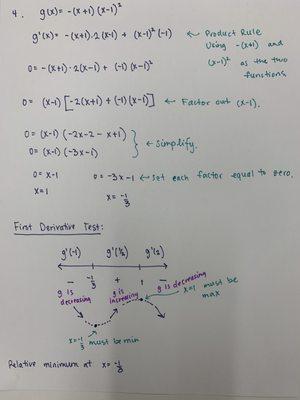 4. g(x) = -(x+1)(x-1)²
g'(x) = -(x+1)·2(x-1) + (x-1)²(-1) ← Product Rule
Using -(x+1) and
(x-1)² as the two
functions.
0 = -(x+1)·2(x-1) + (-1)(x-1)²
0 = (x-1)[-2(x+1) + (-1)(x-1)] ← Factor out (x-1).
0 = (x-1)(-2x-2 - x+1)
0 = (x-1)(-3x-1) ← Simplify.
0 = x-1 0 = -3x-1 ← Set each factor equal to zero.
x=1 x = -1/3
First Derivative Test:
g'(-1) g'(1/2) g'(2)
- -1/3 + 1 -
g is decreasing g is increasing g is decreasing
x=1 must be max
x=-1/3 must be min
Relative minimum at x = -1/3